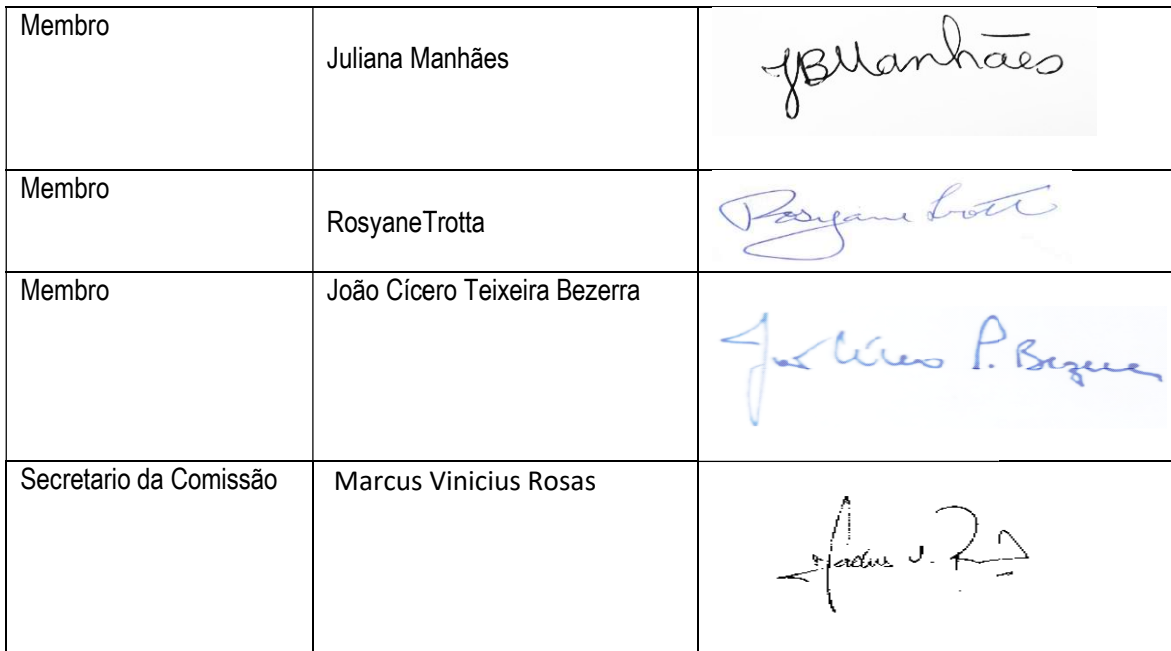 Membro
Juliana Manhães
JBManhães
Membro
RosyaneTrotta
Rosyane Trotta
Membro
João Cícero Teixeira Bezerra
João Cícero T. Bezerra
Secretario da Comissão
Marcus Vinicius Rosas
Marcus V.